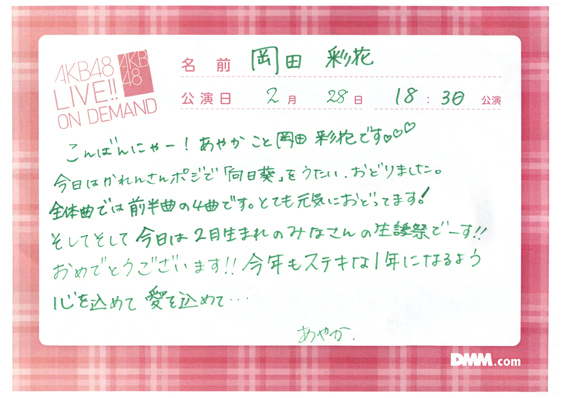 AKB48
LIVE!!
ON DEMAND
AKB
48
名前 岡田 彩花
公演日 2月 28日 18:30 公演
こんばんにゃー!あやかこと岡田 彩花です♡♡♡
今日はかれんさんポジで「向日葵」をうたい、おどりました。
全体曲では前半曲の4曲です。とても元気におどってます!
そしてそして今日は2月生まれのみなさんの生誕祭でーす!!
おめでとうございます!!今年もステキな1年になるよう
心を込めて愛を込めて…
あやか.
DMM.com